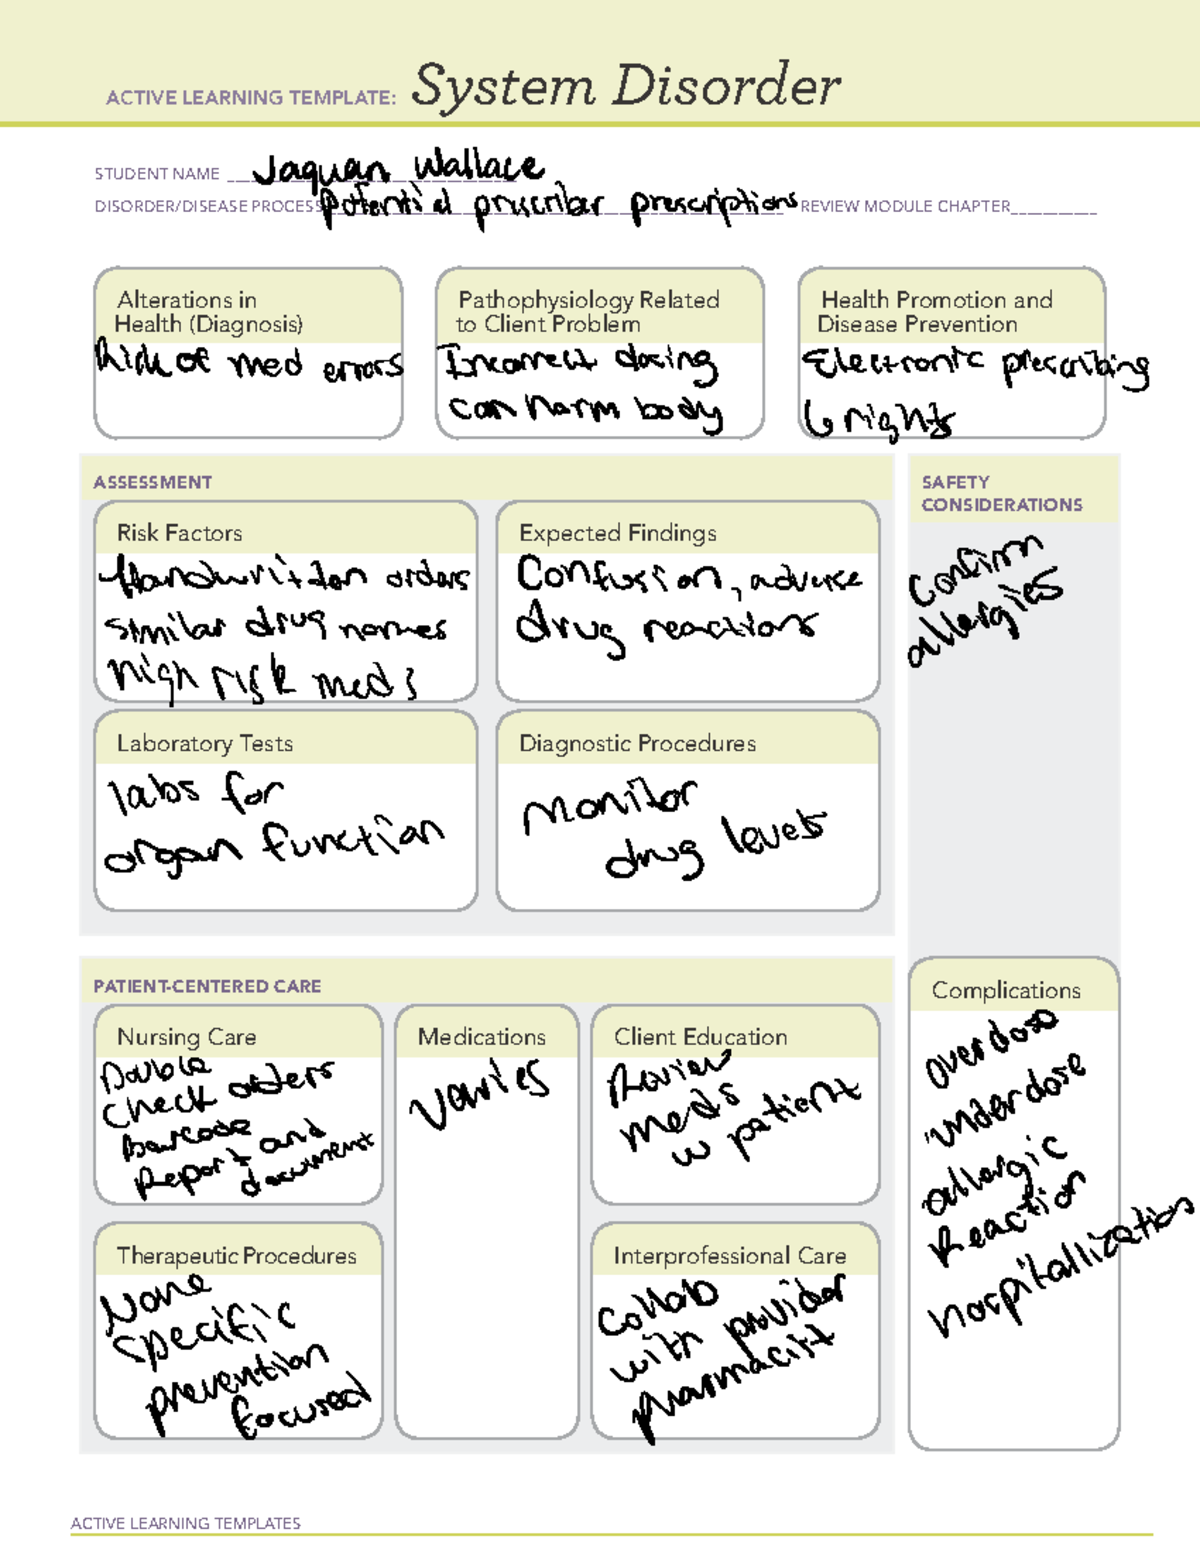 ACTIVE LEARNING TEMPLATE: System Disorder
STUDENT NAME Jaquan Wallace
DISORDER/DISEASE PROCESS prescriber prescriptions REVIEW MODULE CHAPTER
Alterations in
Health (Diagnosis)
Risk of med errors
Pathophysiology Related
to Client Problem
Incorrect dosing
can harm body
Health Promotion and
Disease Prevention
Electronic prescribing
6 rights
ASSESSMENT
SAFETY
CONSIDERATIONS
Risk Factors
Handwritten orders
similar drug names
high risk meds
Expected Findings
Confusion, adverse
drug reactions
Confirm
allergies
Laboratory Tests
labs for
organ function
Diagnostic Procedures
Monitor
drug levels
PATIENT-CENTERED CARE
Nursing Care
Double
check orders
Barcode
Report and
document
Medications
varies
Client Education
Review
meds
w patient
Complications
overdose
underdose
allergic
Reaction
hospitallization
Therapeutic Procedures
None
specific
prevention
focused
Interprofessional Care
Collab
with provider
pharmacist
ACTIVE LEARNING TEMPLATES